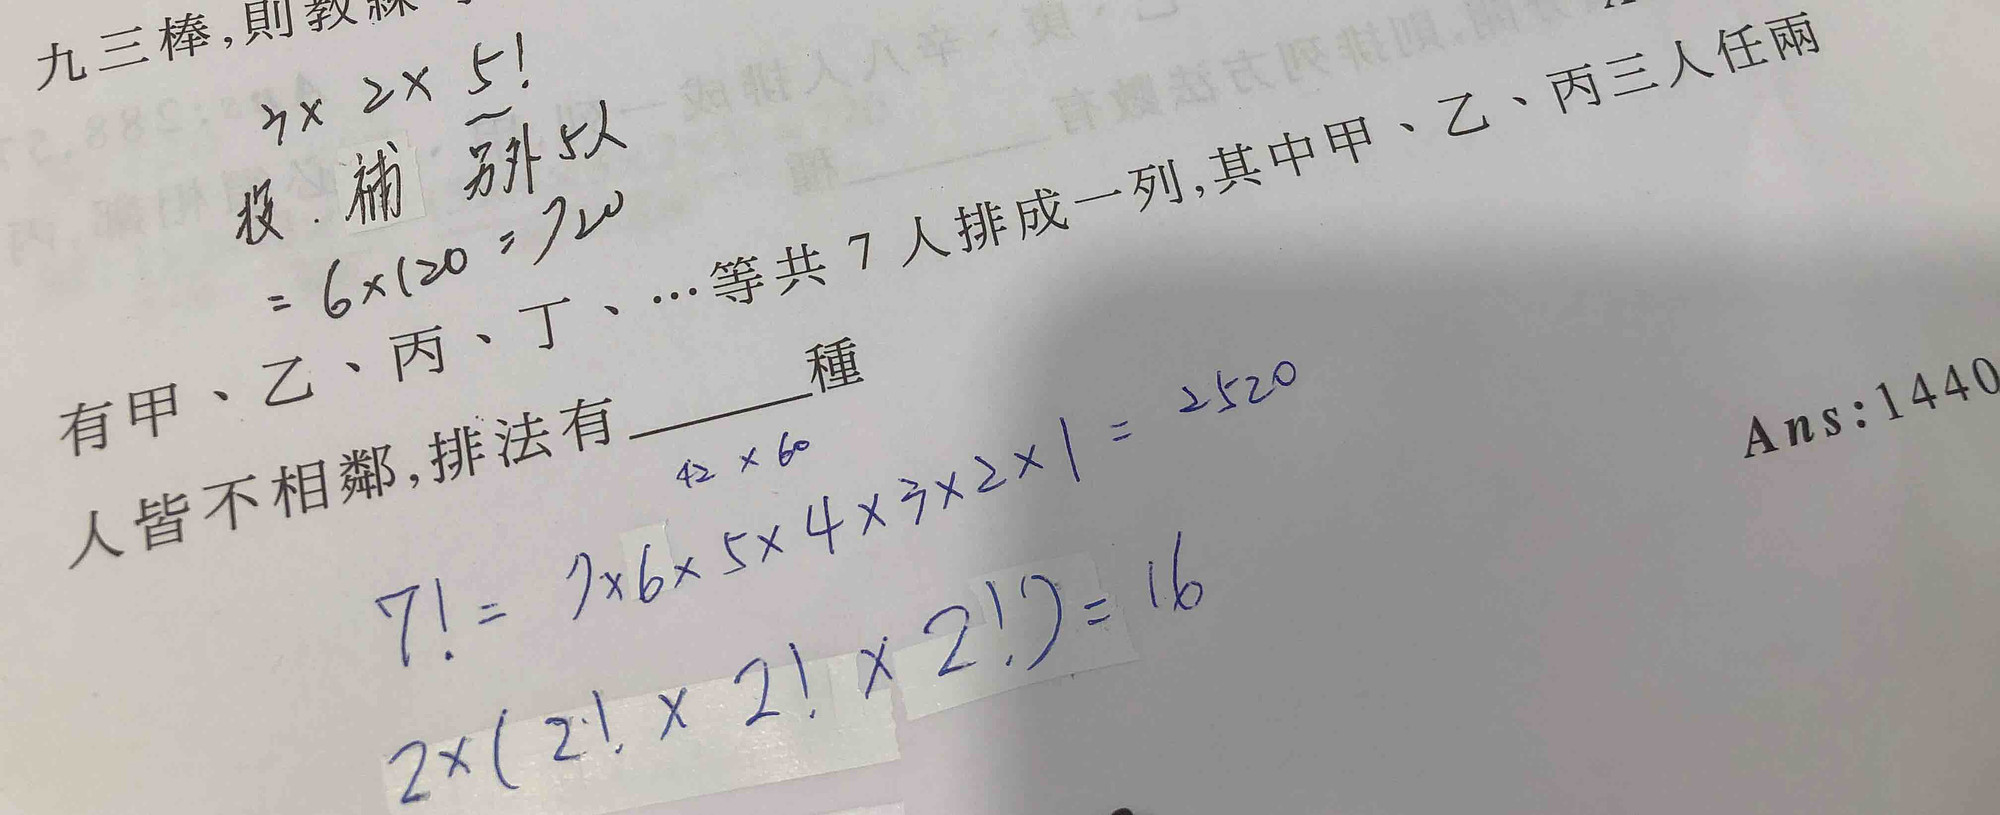 九三棒,則教練
3 × 2 × 5!
投 . 補 另外5人
= 6×120 = 720
有甲、乙、丙、丁、…等共 7 人排成一列,其中甲、乙、丙三人任兩
人皆不相鄰,排法有______種
Ans:1440
42 × 60
7! = 7×6×5×4×3×2×1 = 2520
2×(2! × 2! × 2!) = 16